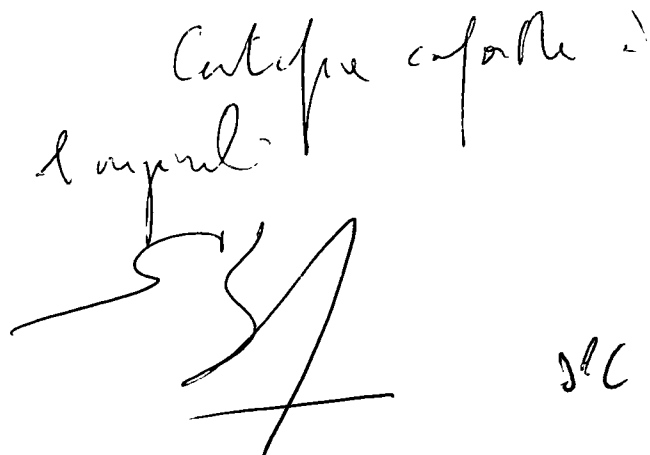 Certifié conforme à
l'original